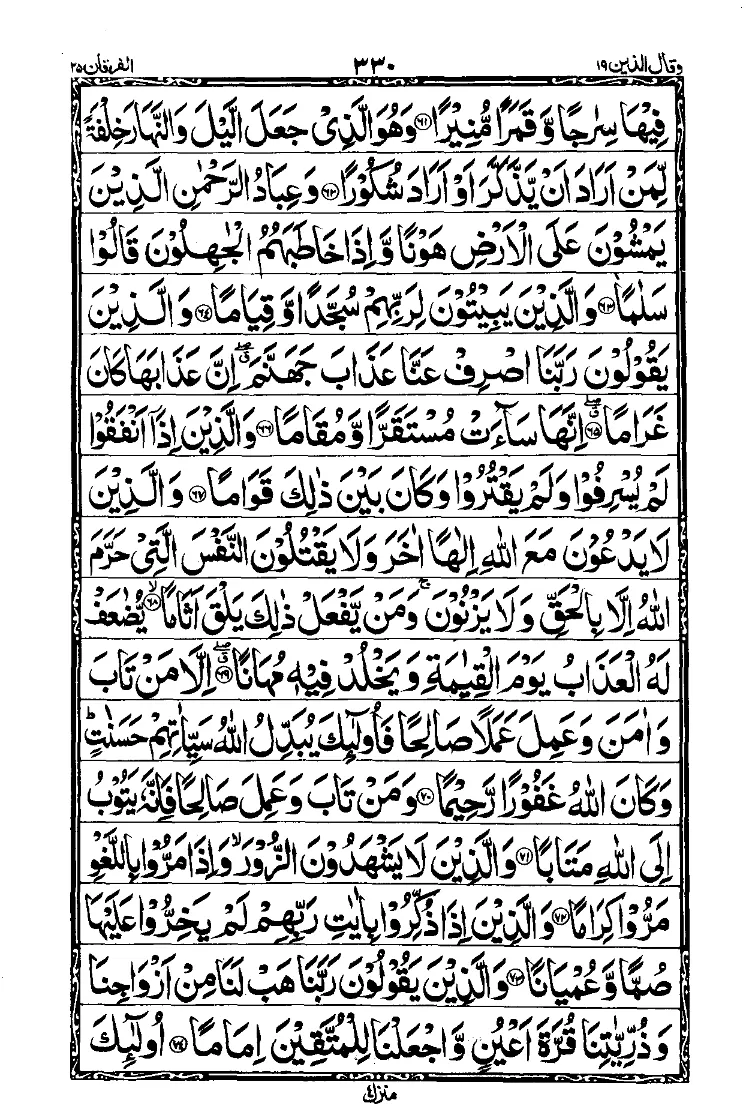 وقال الذین ۱۹
۳۳۰
الفرقان ۲۵
فِیْهَا سِرٰجًا وَّ قَمَرًا مُّنِیْرًا ﴿۶۱﴾ وَهُوَ الَّذِیْ جَعَلَ الَّیْلَ وَالنَّهَارَ خِلْفَةً
لِّمَنْ اَرَادَ اَنْ یَّذَّكَّرَ اَوْ اَرَادَ شُكُوْرًا ﴿۶۲﴾ وَعِبَادُ الرَّحْمٰنِ الَّذِیْنَ
یَمْشُوْنَ عَلَی الْاَرْضِ هَوْنًا وَّ اِذَا خَاطَبَهُمُ الْجٰهِلُوْنَ قَالُوْا
سَلٰمًا ﴿۶۳﴾ وَالَّذِیْنَ یَبِیْتُوْنَ لِرَبِّهِمْ سُجَّدًا وَّ قِیَامًا ﴿۶۴﴾ وَالَّذِیْنَ
یَقُوْلُوْنَ رَبَّنَا اصْرِفْ عَنَّا عَذَابَ جَهَنَّمَ ۖۗ اِنَّ عَذَابَهَا كَانَ
غَرَامًا ﴿۶۵﴾ ۖۗ اِنَّهَا سَآءَتْ مُسْتَقَرًّا وَّ مُقَامًا ﴿۶۶﴾ وَالَّذِیْنَ اِذَاۤ اَنْفَقُوْا
لَمْ یُسْرِفُوْا وَلَمْ یَقْتُرُوْا وَكَانَ بَیْنَ ذٰلِكَ قَوَامًا ﴿۶۷﴾ وَالَّذِیْنَ
لَا یَدْعُوْنَ مَعَ اللّٰهِ اِلٰهًا اٰخَرَ وَلَا یَقْتُلُوْنَ النَّفْسَ الَّتِیْ حَرَّمَ
اللّٰهُ اِلَّا بِالْحَقِّ وَلَا یَزْنُوْنَ ۚ وَمَنْ یَّفْعَلْ ذٰلِكَ یَلْقَ اَثَامًا ﴿۶۸﴾ ۙ یُّضٰعَفْ
لَهُ الْعَذَابُ یَوْمَ الْقِیٰمَةِ وَیَخْلُدْ فِیْهٖ مُهَانًا ﴿۶۹﴾ ۖۗ اِلَّا مَنْ تَابَ
وَاٰمَنَ وَعَمِلَ عَمَلًا صَالِحًا فَاُولٰٓئِكَ یُبَدِّلُ اللّٰهُ سَیِّاٰتِهِمْ حَسَنٰتٍ ؕ
وَكَانَ اللّٰهُ غَفُوْرًا رَّحِیْمًا ﴿۷۰﴾ وَمَنْ تَابَ وَعَمِلَ صَالِحًا فَاِنَّهٗ یَتُوْبُ
اِلَی اللّٰهِ مَتَابًا ﴿۷۱﴾ وَالَّذِیْنَ لَا یَشْهَدُوْنَ الزُّوْرَ ۙ وَاِذَا مَرُّوْا بِاللَّغْوِ
مَرُّوْا كِرَامًا ﴿۷۲﴾ وَالَّذِیْنَ اِذَا ذُكِّرُوْا بِاٰیٰتِ رَبِّهِمْ لَمْ یَخِرُّوْا عَلَیْهَا
صُمًّا وَّ عُمْیَانًا ﴿۷۳﴾ وَالَّذِیْنَ یَقُوْلُوْنَ رَبَّنَا هَبْ لَنَا مِنْ اَزْوَاجِنَا
وَذُرِّیّٰتِنَا قُرَّةَ اَعْیُنٍ وَّ اجْعَلْنَا لِلْمُتَّقِیْنَ اِمَامًا ﴿۷۴﴾ اُولٰٓئِكَ
منزل ۴